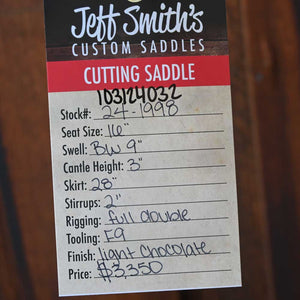 Jeff Smith's
CUSTOM SADDLES
CUTTING SADDLE
103124032
Stock#: 24-1998
Seat Size: 16"
Swell: BW 9"
Cantle Height: 3"
Skirt: 28"
Stirrups: 2"
Rigging: full double
Tooling: F9
Finish: light Chocolate
Price: $3,350